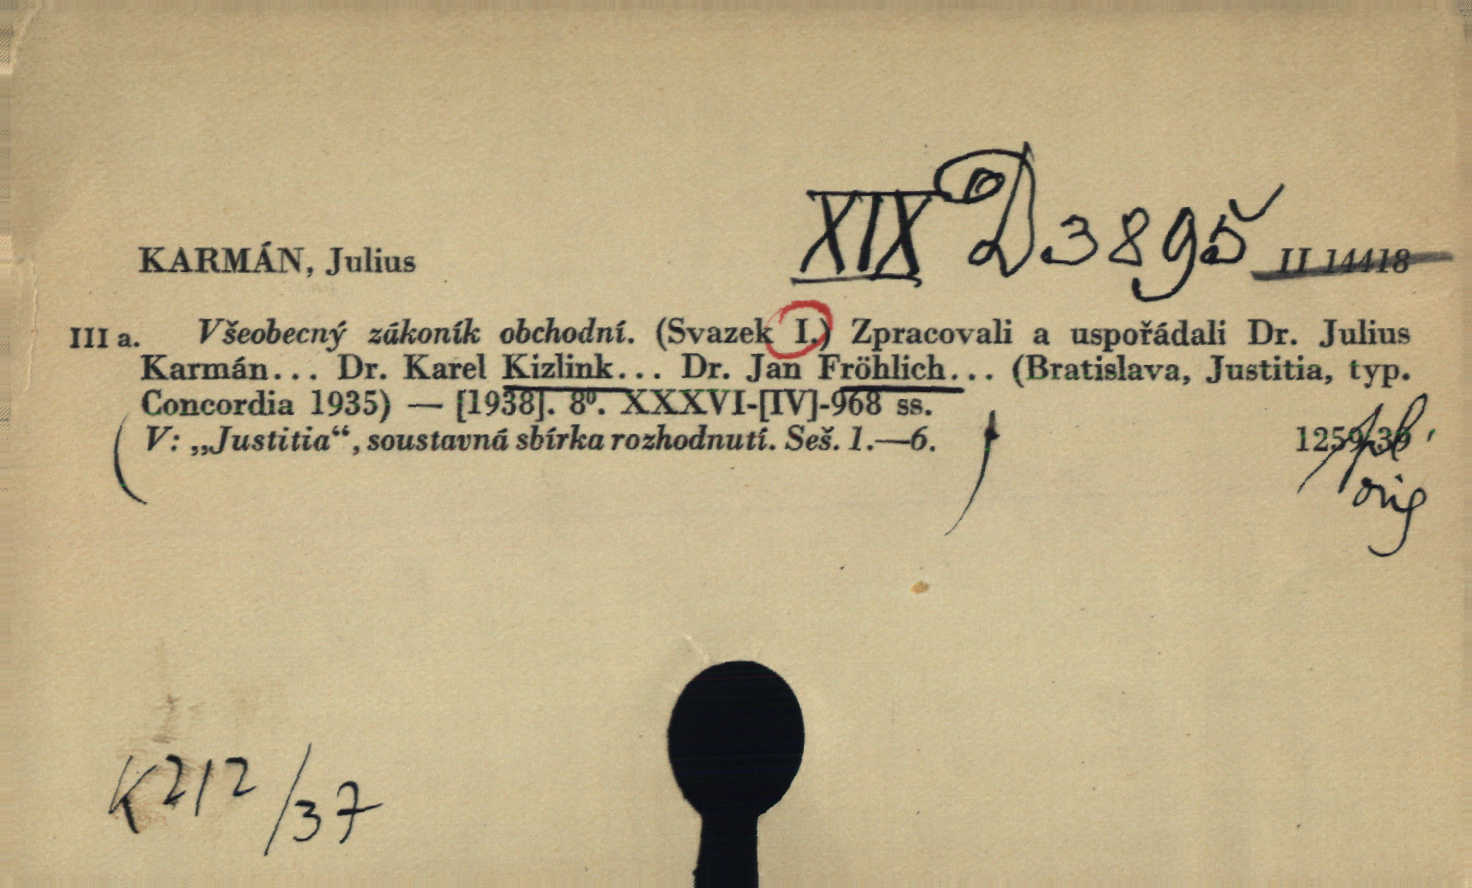 XIX D 3895
KARMÁN, Julius II 14418
III a. Všeobecný zákoník obchodní. (Svazek I.) Zpracovali a uspořádali Dr. Julius
Karmán... Dr. Karel Kizlink... Dr. Jan Fröhlich... (Bratislava, Justitia, typ.
Concordia 1935) — [1938]. 8⁰. XXXVI-[IV]-968 ss.
(V: „Justitia“, soustavná sbírka rozhodnutí. Seš. 1.—6.) 1259-36
orig
K 212/37